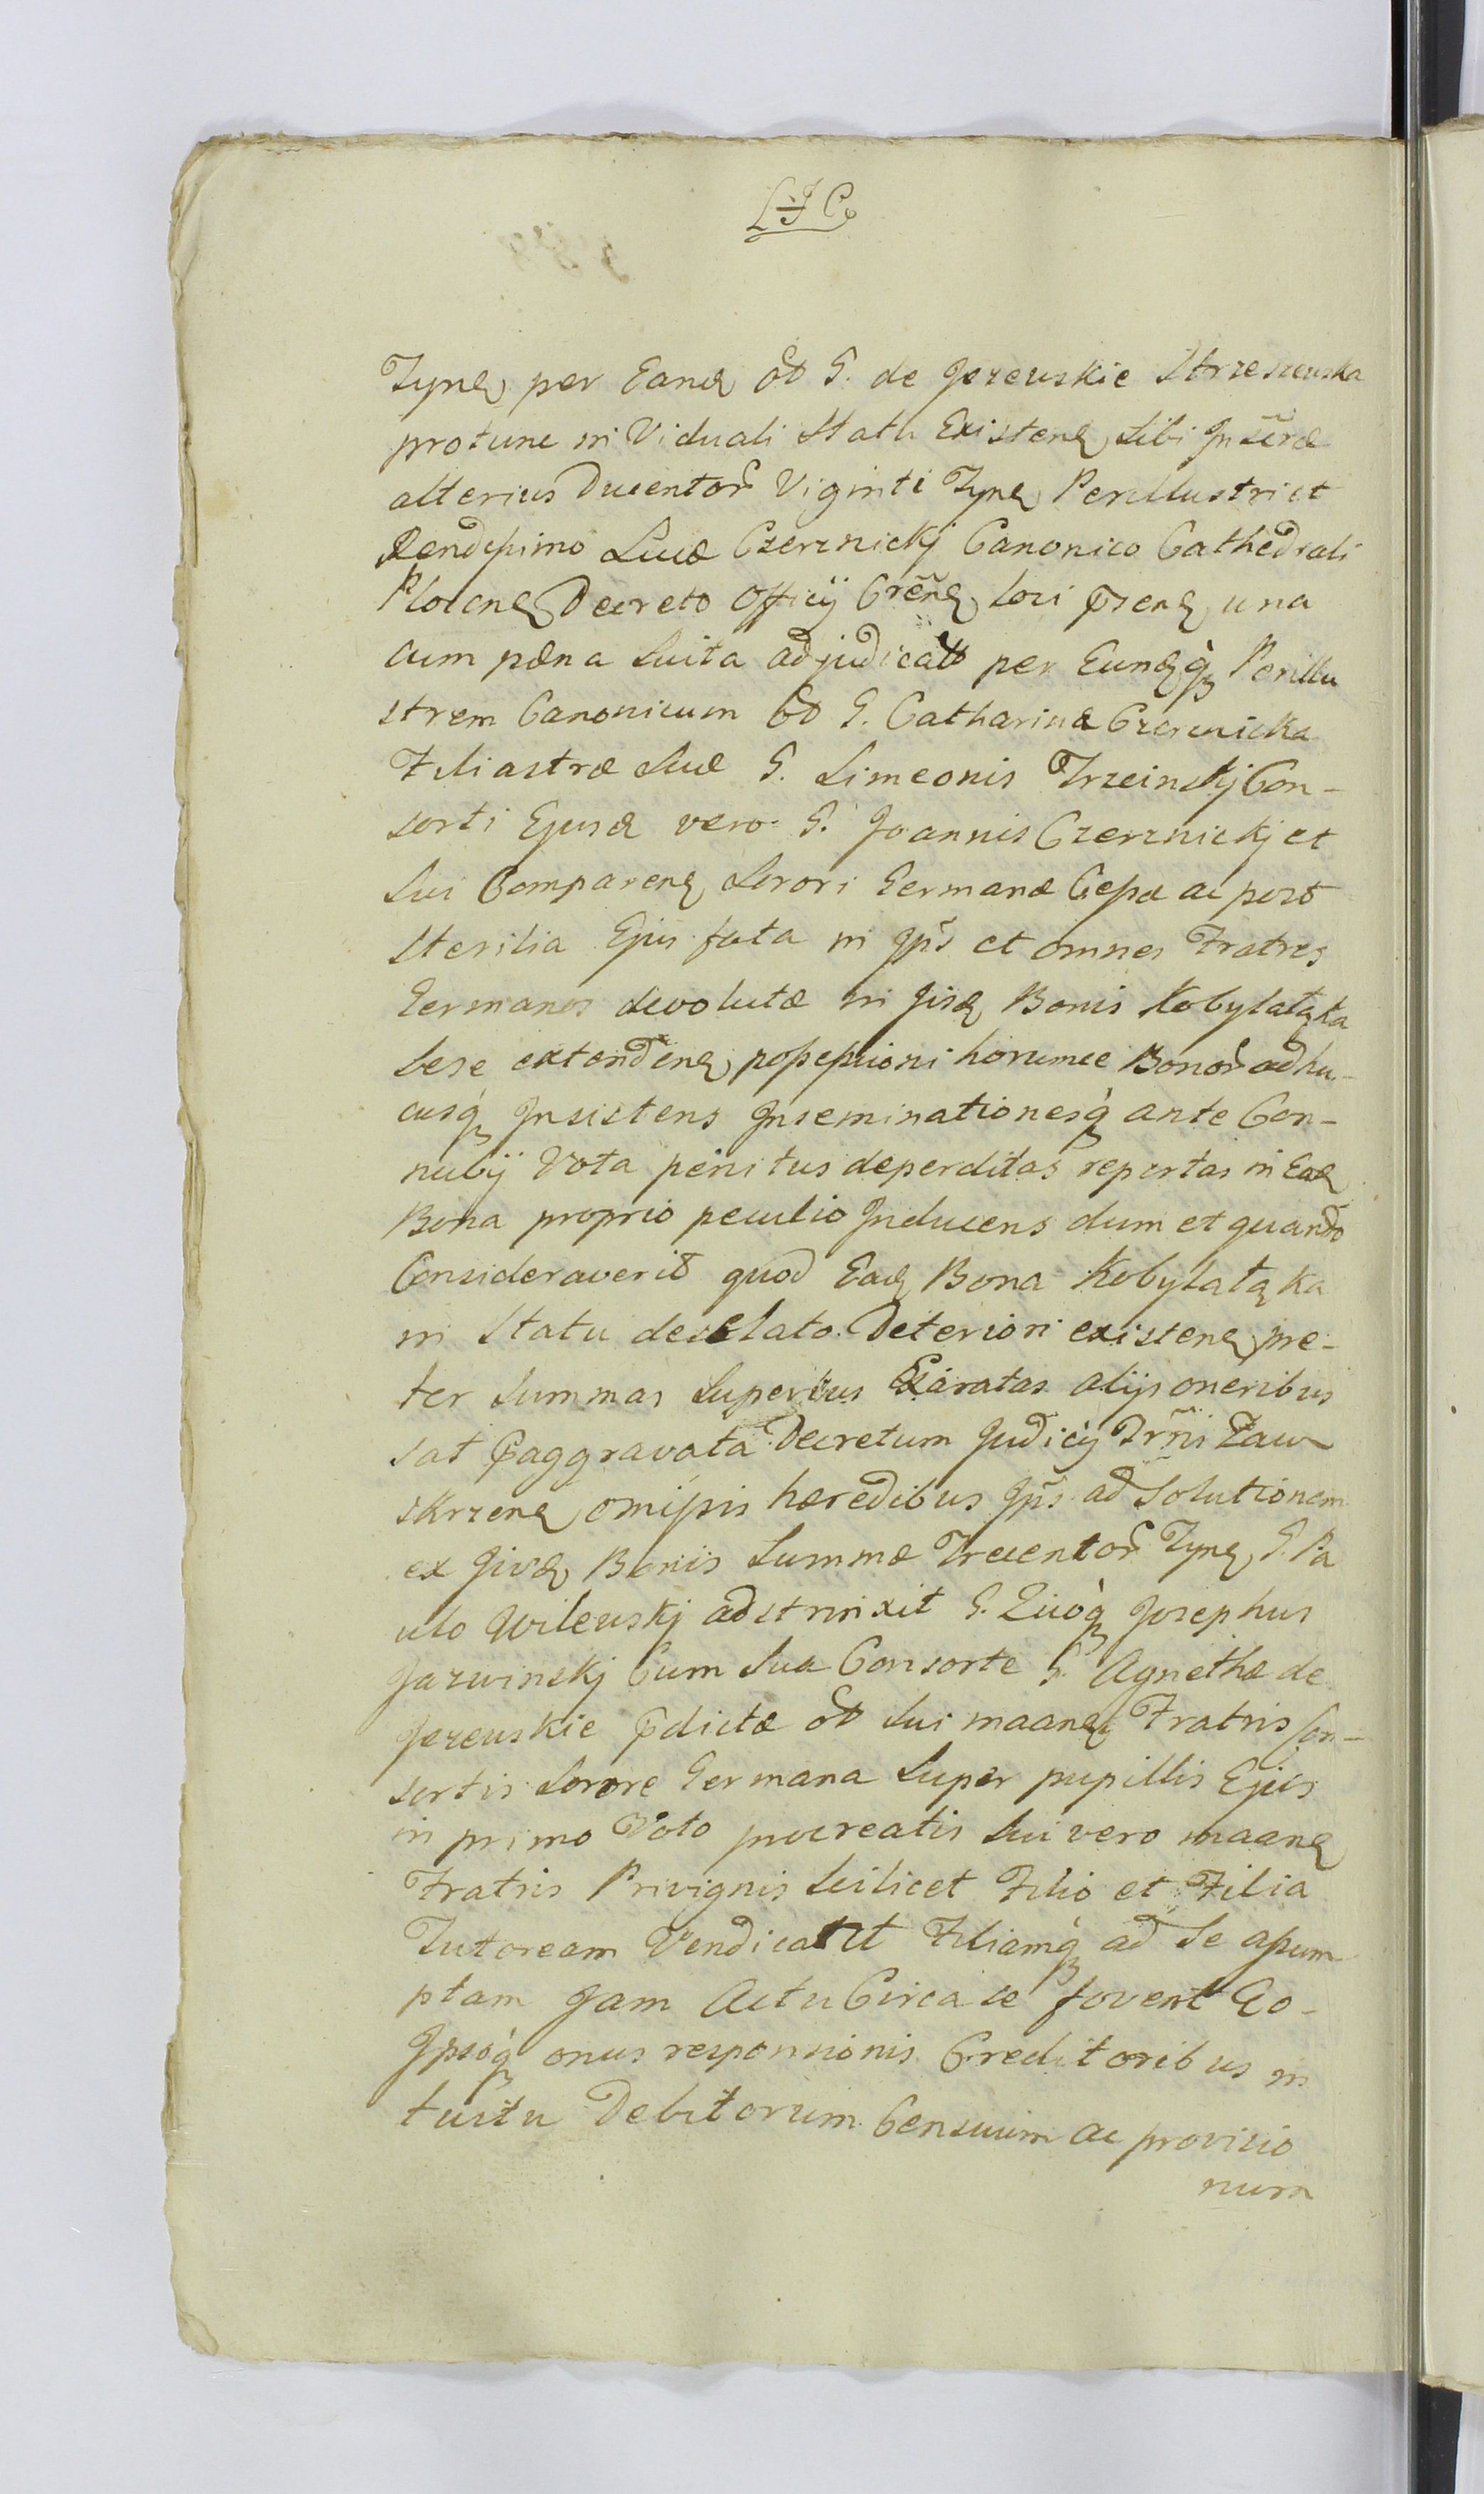 Tynę, per Eandę oƀ G. de Jezewskie Strzeszewska
protunc in Viduali Statu Existenę, Sibi Inscrã
alterius Ducentor̃ Viginti Tynę, Perillustri et
Rendissimo Lucæ Czerznickj Canonico Cathedrali
Plocenę Decreto Officÿ Crẽnę, loci p̃senę, una
cum pæna Suita adjudicatt per Eundęq̀ꝫ Perillu
strem Canonicum oƀ G. Catharinæ Czerznicka
Filiastræ Suæ G. Simeonis Trzcinskj Con-
sorti Ejusdę vero G. Joannis Czerznickj et
Sui Comparenę, Sorori Germanæ Cessæ ac post
Sterilia Ejus fata in Ip̃s et omnes Fratres
Germanos devolutæ in Iisdę Bonis Kobylałąka
Sese extendenę, possessioni horumce Bonor̃ adhu-
cusq̀ꝫ Insistens Inseminationesq̀ꝫ ante Con-
nubÿ Vota penitus deperditas repertas in Eadę
Bona proprio peculio Inducens dum et quando
Consideraverit quod Eadę Bona Kobylałąka
in Statu desolato Deteriori existenę, præ-
ter Summas Superius Exaratas alijs oneribus
sat p̃aggravata Decretum Judicÿ Trñi Zaw
skrzenę, omissis hæredibus Ip̃s ad Solutionem
ex Iisdę, Boniis Summæ Trecentor̃ Tynę, G. Pa
ulo Wilewskj adstrinxit G. Quoq̀ꝫ Josephus
Jarwinskj Cum Sua Consorte G. Agnethæ de
Jezewskie p̃dictæ oƀ Sui maanę, Fratris Con-
sortis Sorore Germana Super pupillis Ejus
in primo Voto procreatis Sui vero maanę
Fratris Privignis Scilicet Filio et Filia
Tutoream Vendicatt Filiamq̀ꝫ ad Se assum
ptam Jam Actu Circa se fovent Eo-
Ipsoq̀ꝫ onus responsionis Creditoribus in
tuitu Debitorum Censuum ac provisio
num